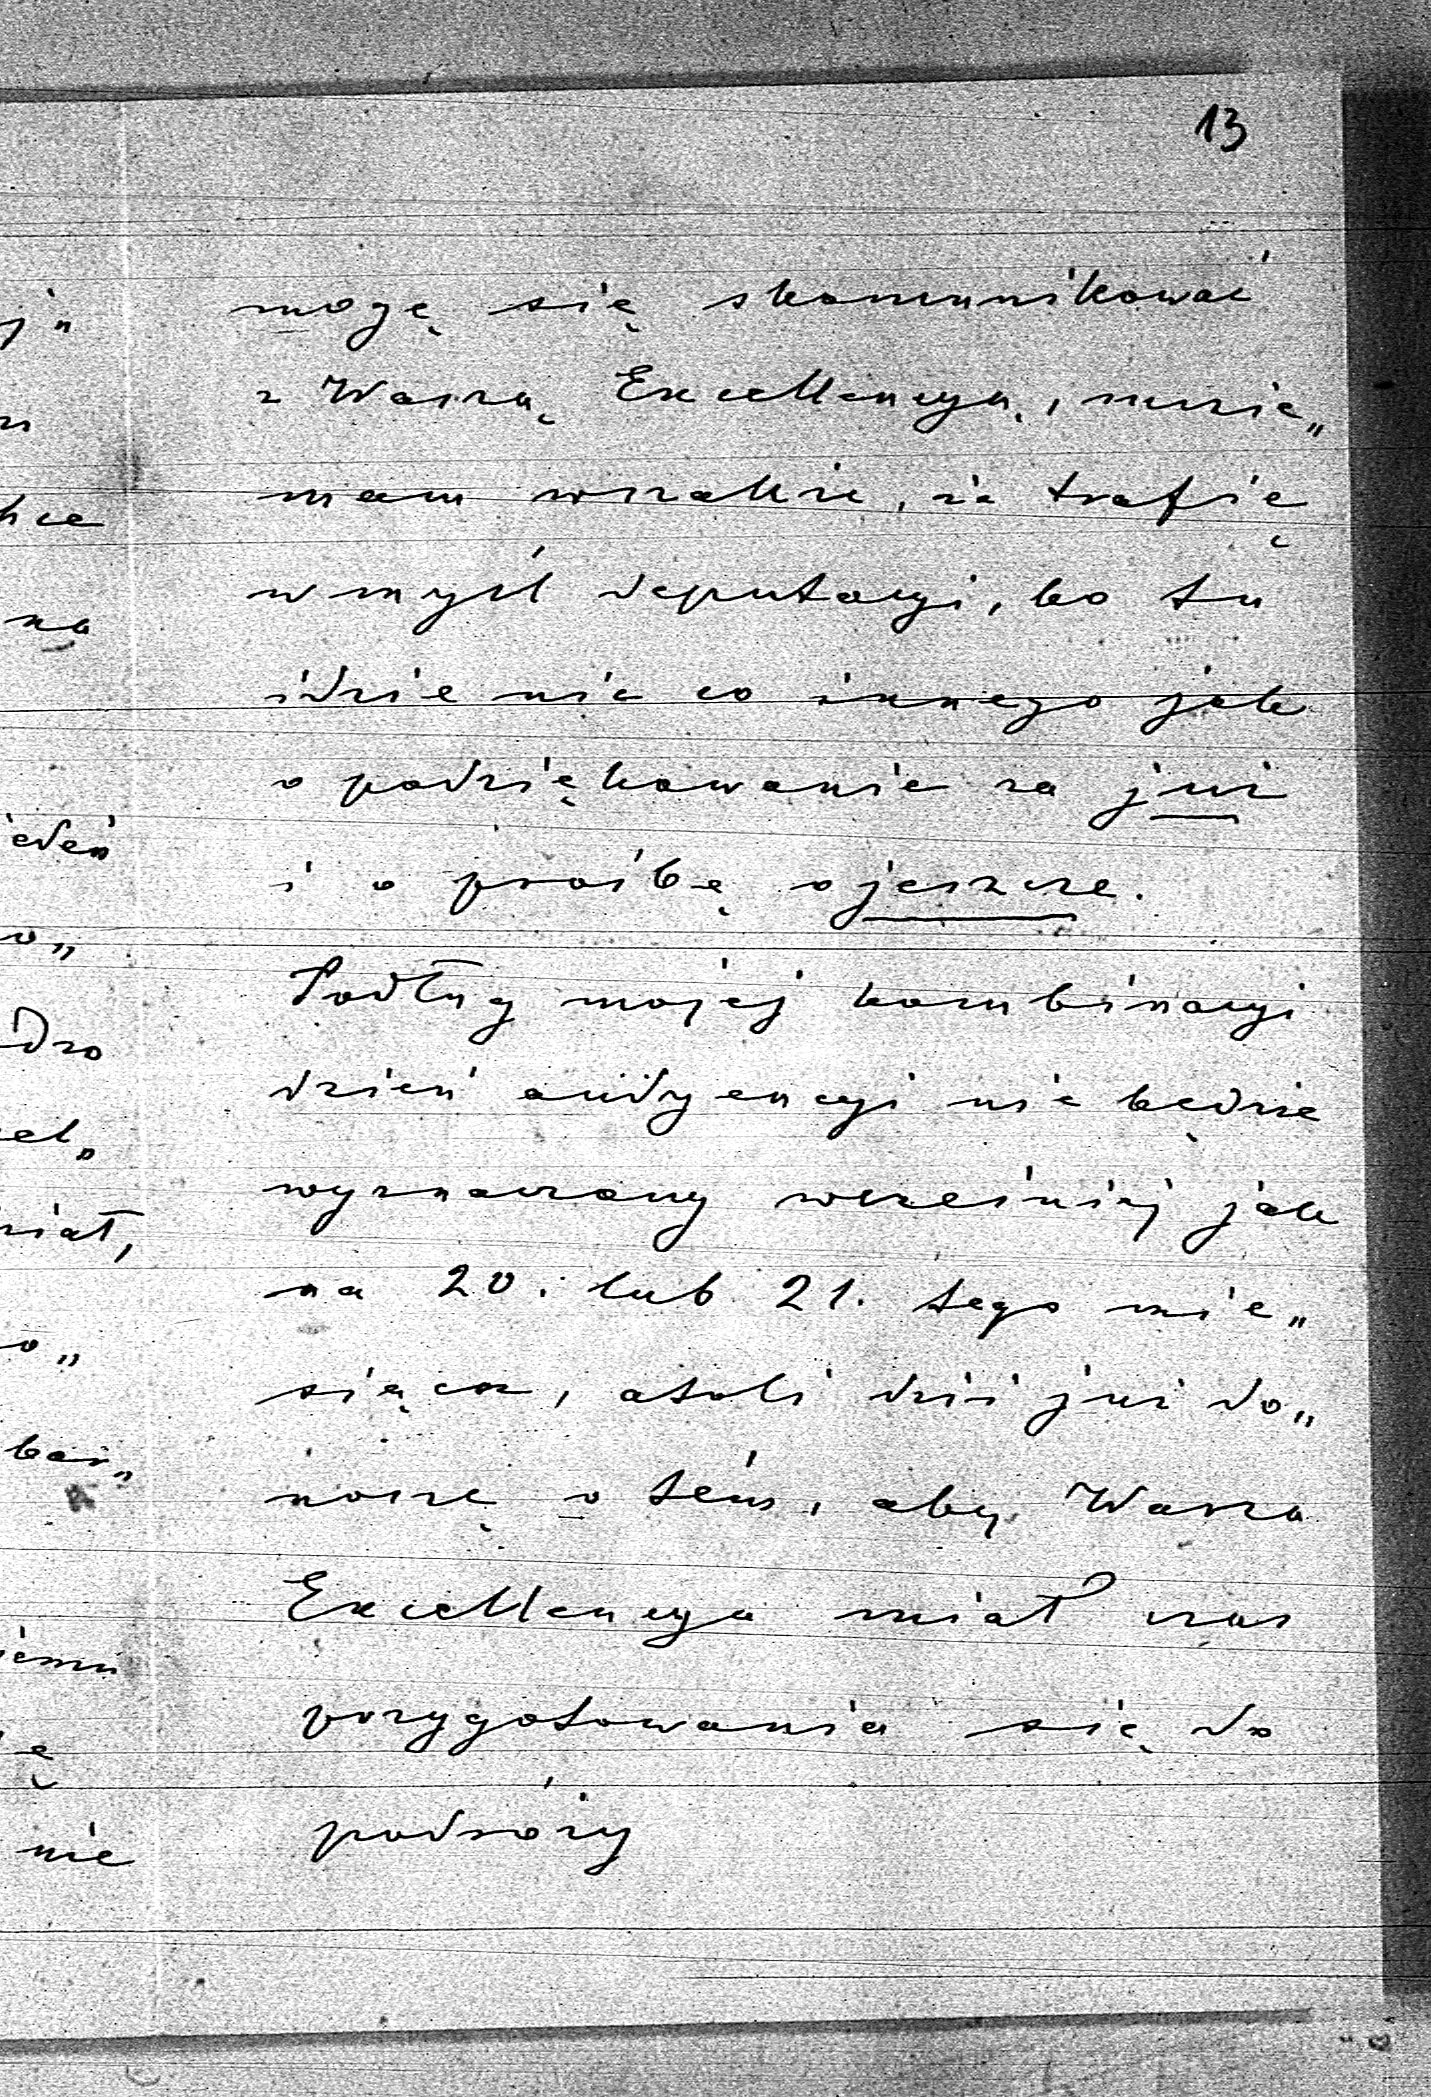 13
mogę się skomunikować
z Waszą Excellencyą, mnie„
mam wszakże, że trafię
w myśl deputacyi, bo tu
idzie nic co innego jak
o podziękowanie za już
i o prośbę o jeszcze.
Podług mojej kombinacyi
dzień audyencyi nie będzie
wyznaczony wcześniej jak
na 20. lub 21. tego mie„
siąca, atoli dziś już do„
noszę o tém, aby Wasza
Excellencya miał czas
przygotowania się do
podróży
hce
na
nie